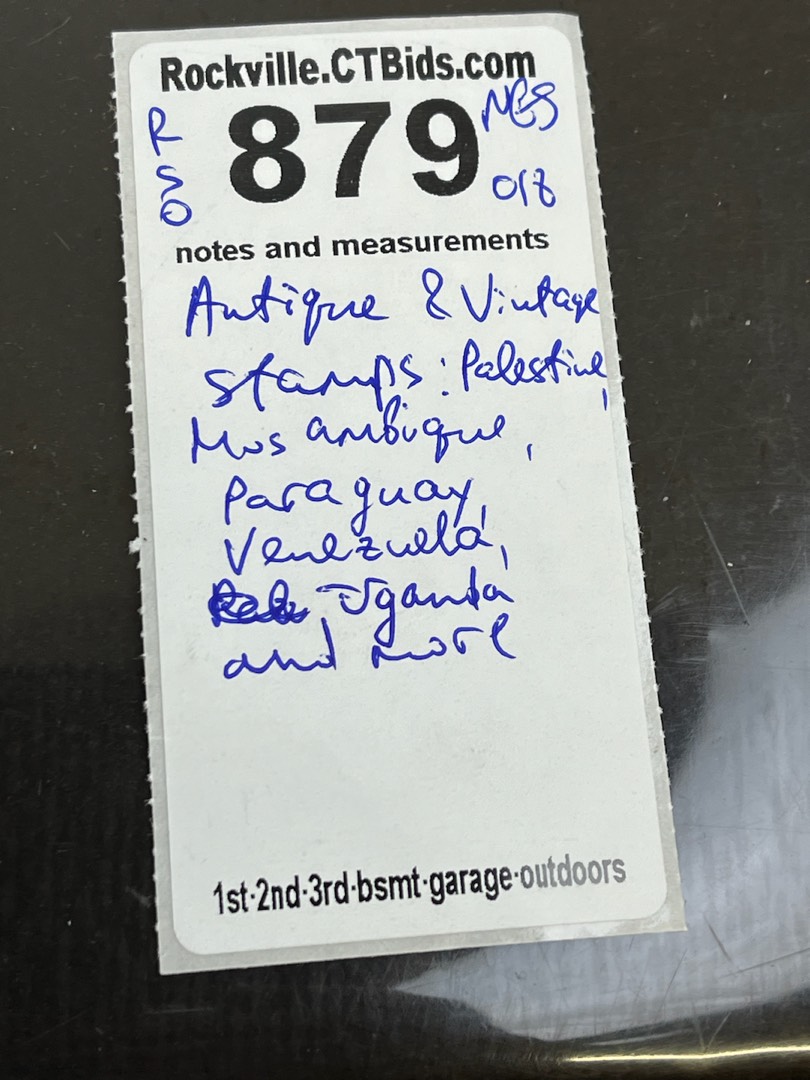 Rockville.CTBids.com
R
S
O
879
018
notes and measurements
Antique & Vintage
stamps: Palestine,
Mosambique,
Paraguay,
Venezuela,
Uganda
and more
1st·2nd·3rd·bsmt·garage·outdoors